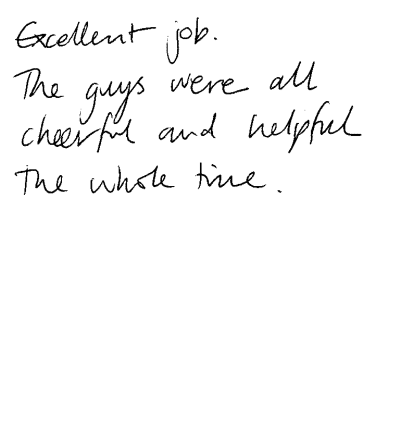 Excellent job.
The guys were all
cheerful and helpful
The whole time.